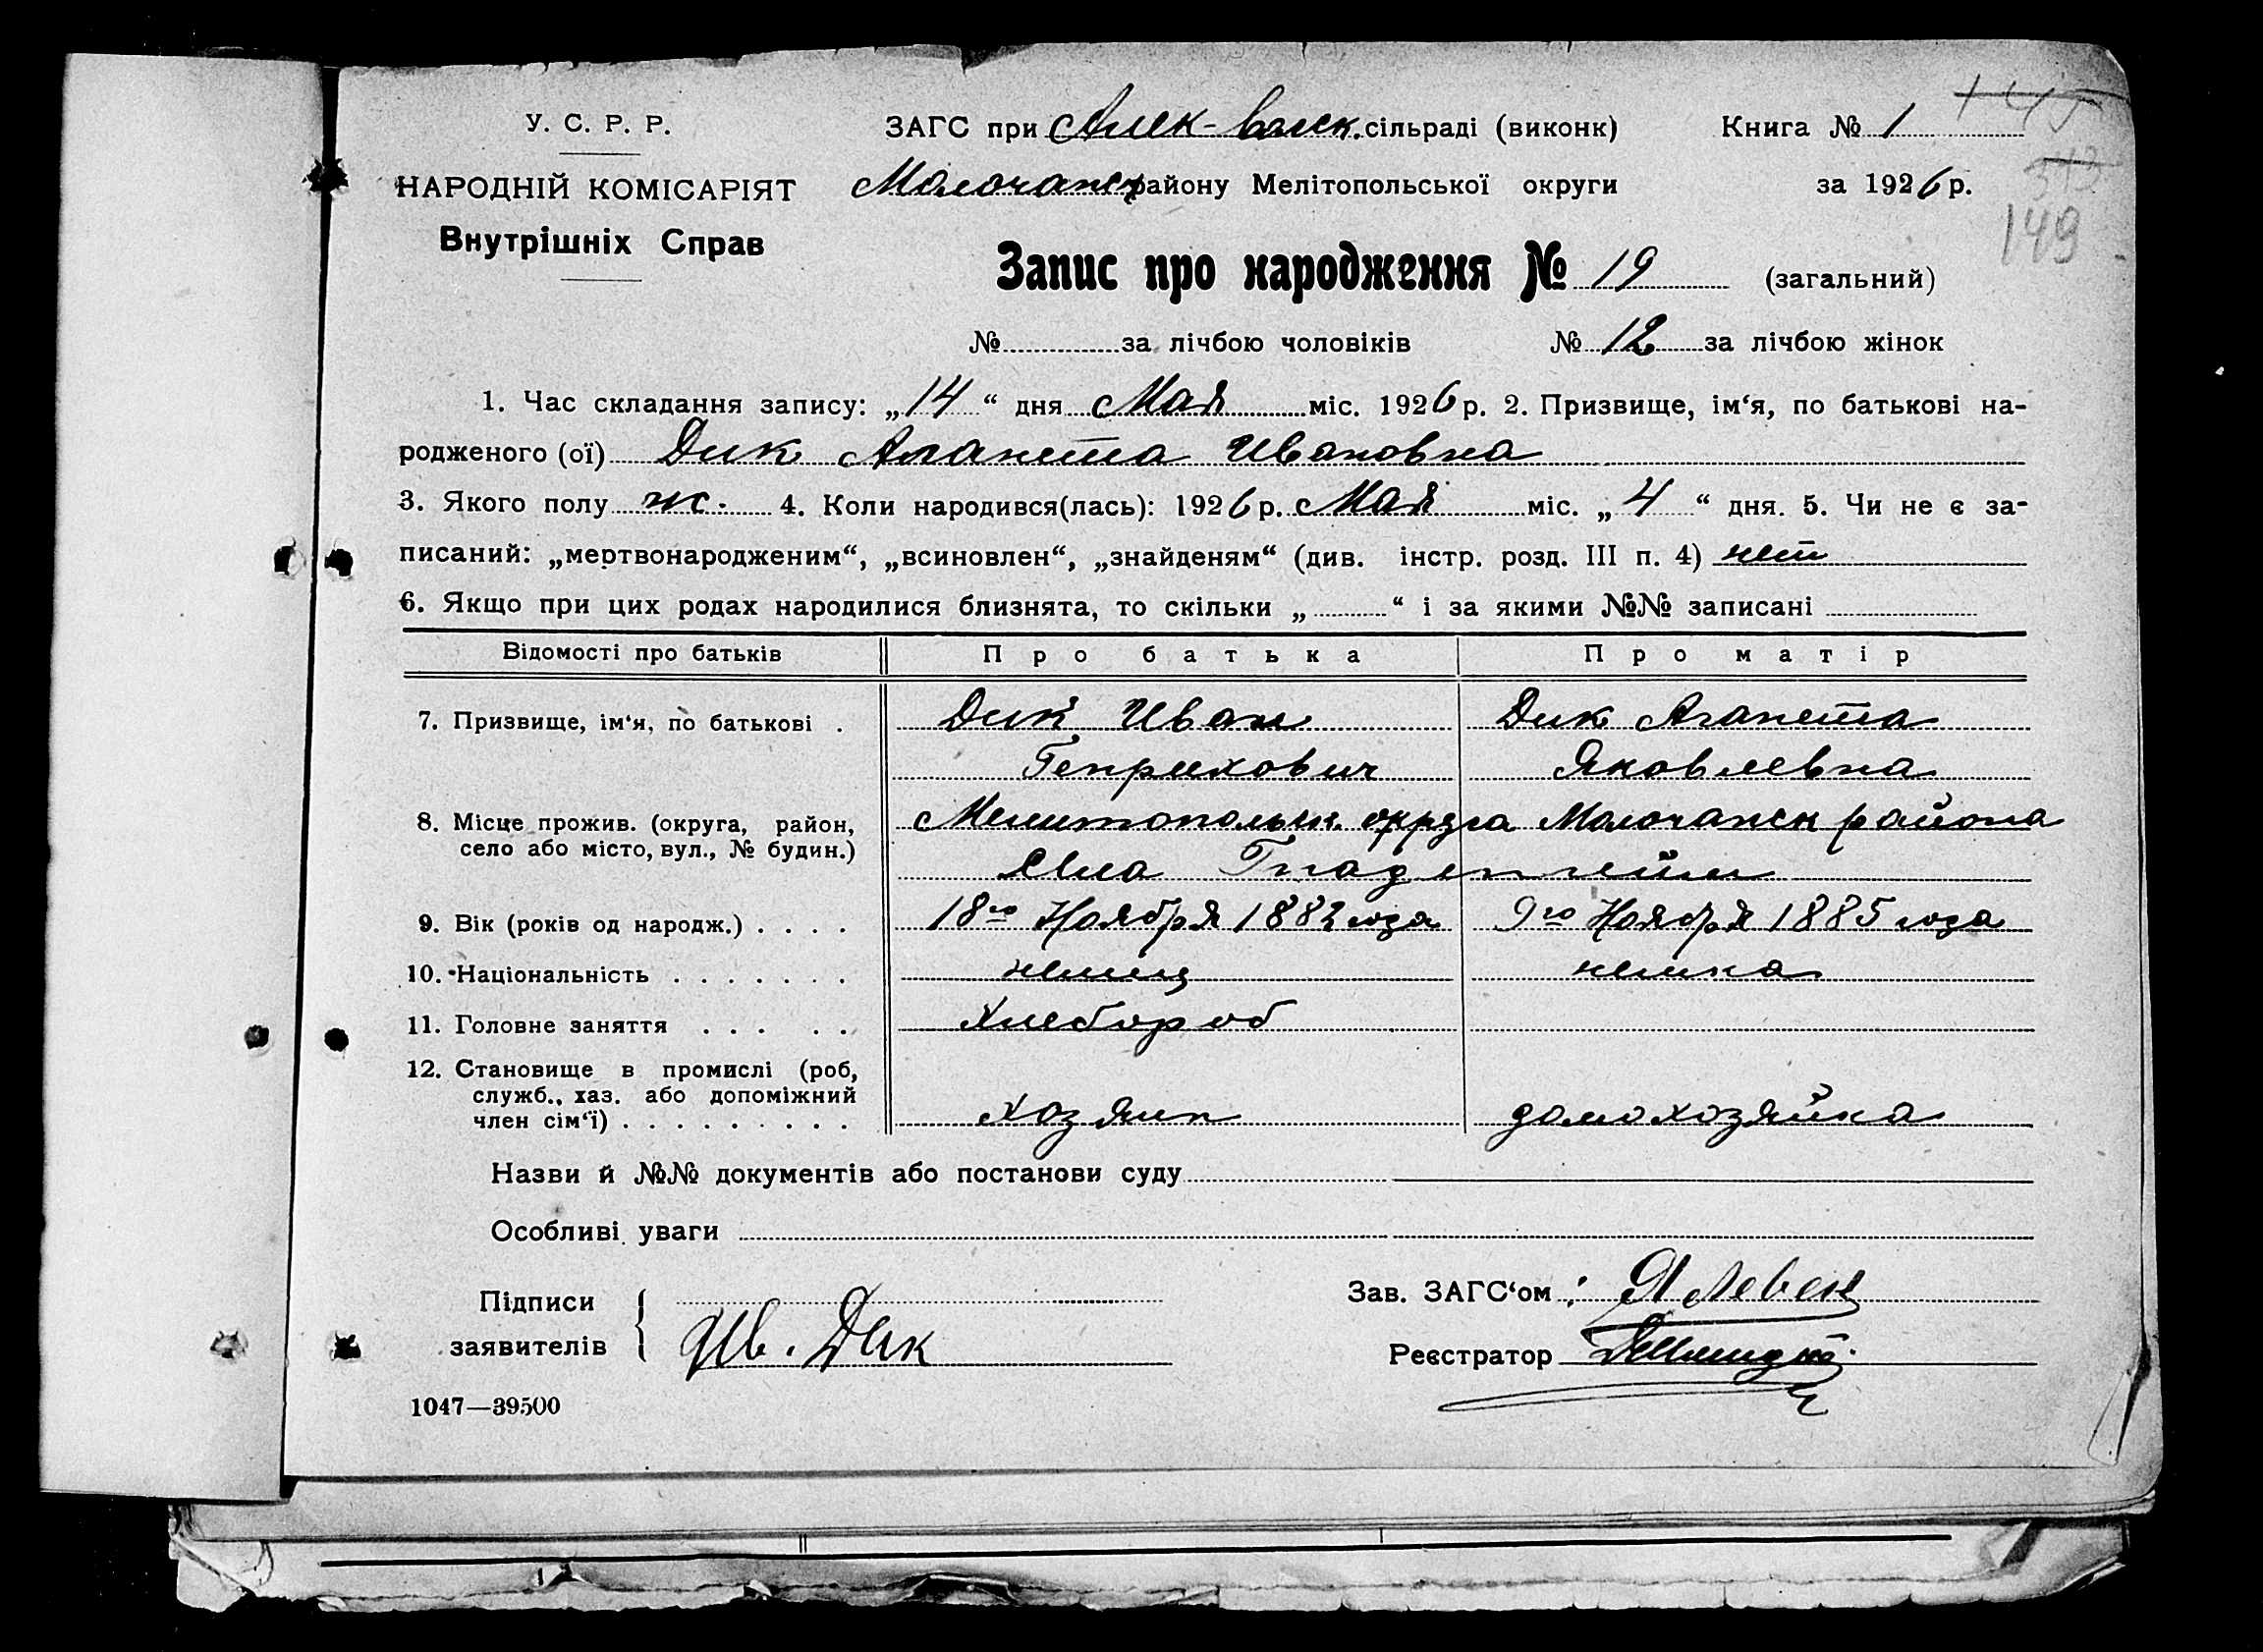 У. С. Р. Р.
НАРОДНІЙ КОМІСАРІЯТ
Внутрішніх Справ
ЗАГС при Алек- волск. сільраді (виконк)
Молочанск району Мелітопольської округи
Книга № 1
за 1926 р.
145
149
Запис про народження № 19 (загальний)
№ за лічбою чоловіків № 12 за лічбою жінок
1. Час складання запису: „14“ дня Мая міс. 1926 р. 2. Призвище, ім‘я, по батькові на-
родженого (ої) Дик Аганета Ивановна
3. Якого полу ж. 4. Коли народився(лась): 1926 р. Мая міс. „4“ дня. 5. Чи не є за-
писаний: „мертвонародженим“, „всиновлен“, „знайденям“ (див. інстр. розд. III п. 4) нет
6. Якщо при цих родах народилися близнята, то скільки „ “ і за якими №№ записані
Відомості про батьків Про батька Про матір
7. Призвище, ім‘я, по батькові . Дик Иван Дик Аганета
Генрихович Яковлевна
8. Місце прожив. (округа, район, село або місто, вул., № будин.) Мелитопольск. округа Молочанск района
села Гнаденгейм
9. Вік (років од народж.) . . . . 18го Ноября 1882 года 9го Ноября 1885 года
10. Національність . . . . . . . немец немка
11. Головне заняття . . . . . Хлебороб
12. Становище в промислі (роб, служб., хаз. або допоміжний член сім‘ї) . . . . . . . . . хозяин домохозяйка
Назви й №№ документів або постанови суду
Особливі уваги
Підписи заявителів { Ив. Дик
Зав. ЗАГС‘ом: Я Левен
Реєстратор
1047—39500